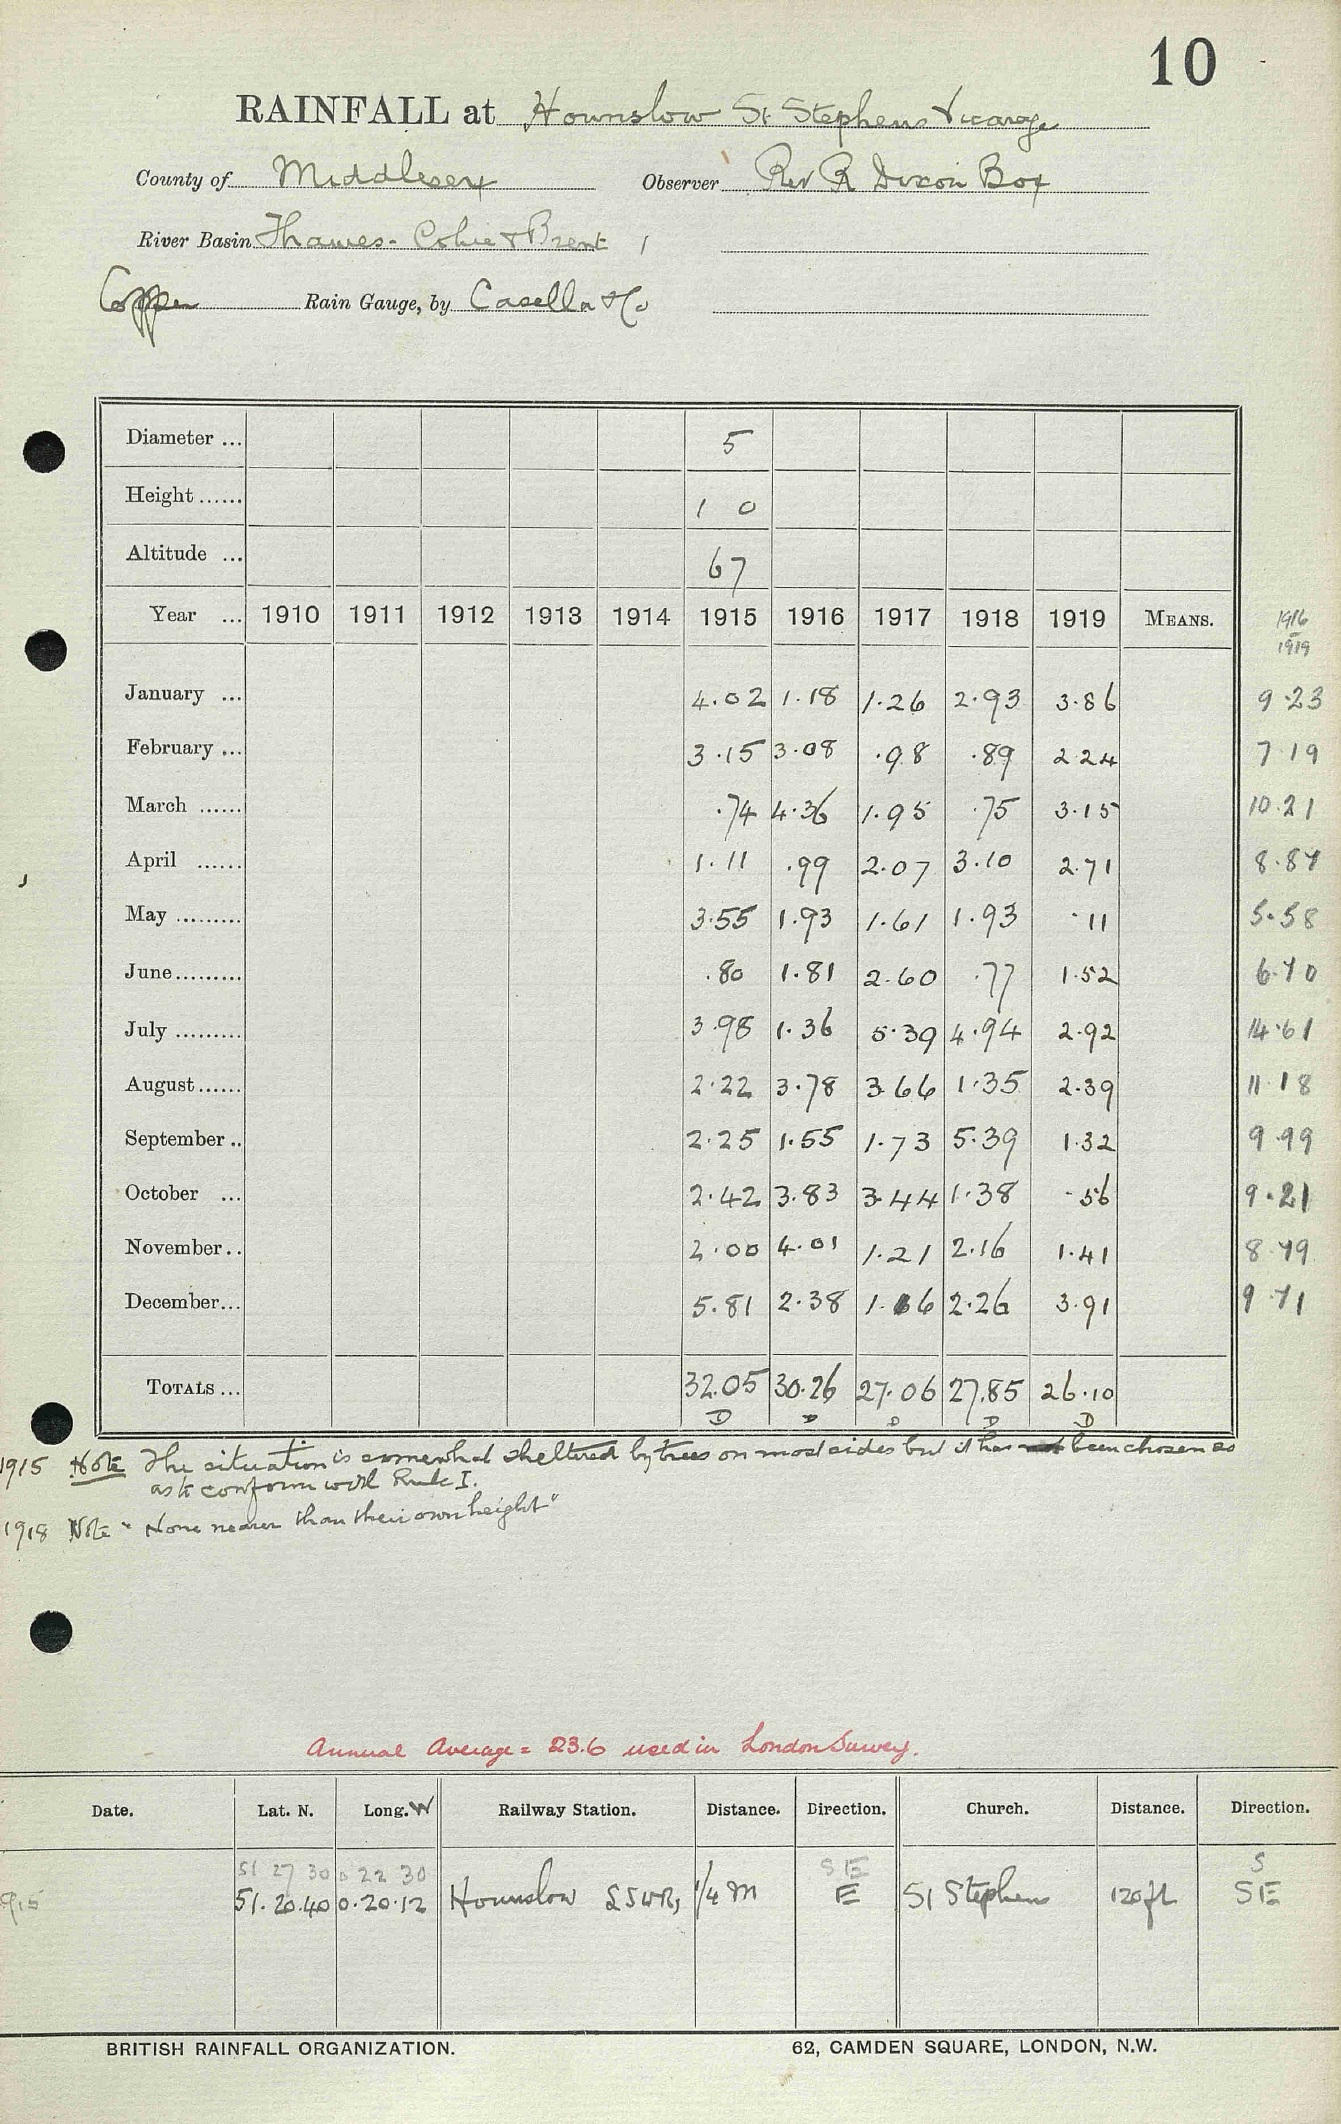 10
RAINFALL at Hounslow St Stephens Vicarage
County of Middlesex Observer Rev R Dixon Box
River Basin Thames - Colne & Brent
Copper Rain Gauge, by Casella & Co
Diameter ... 5
Height ...... 1 0
Altitude ... 67
Year ... 1910 1911 1912 1913 1914 1915 1916 1917 1918 1919 MEANS. 1916 1919
January ... 4.02 1.18 1.26 2.93 3.86 9.23
February ... 3.15 3.08 .98 .89 2.24 7.19
March ...... .74 4.36 1.95 .75 3.15 10.21
April ...... 1.11 .99 2.07 3.10 2.71 8.87
May ......... 3.55 1.93 1.61 1.93 .11 5.58
June ......... .80 1.81 2.60 .77 1.52 6.70
July ......... 3.98 1.36 5.39 4.94 2.92 14.61
August ...... 2.22 3.78 3.66 1.35 2.39 11.18
September .. 2.25 1.55 1.73 5.39 1.32 9.99
October ... 2.42 3.83 3.44 1.38 .56 9.21
November .. 2.00 4.01 1.21 2.16 1.41 8.79
December ... 5.81 2.38 1.16 2.26 3.91 9.71
TOTALS ... 32.05 30.26 27.06 27.85 26.10
D D D D D
1915 Note The situation is somewhat sheltered by trees on most sides but it has been chosen so
as to conform with Rule I.
1918 Note "None nearer than their own height"
Annual Average = 23.6 used in London Survey.
Date. Lat. N. Long. W Railway Station. Distance. Direction. Church. Distance. Direction.
51 27 30 0 22 30 SE S
915 51.20.40 0.20.12 Hounslow LSWR, 1/4 M E St Stephens 120 ft SE
BRITISH RAINFALL ORGANIZATION. 62, CAMDEN SQUARE, LONDON, N.W.